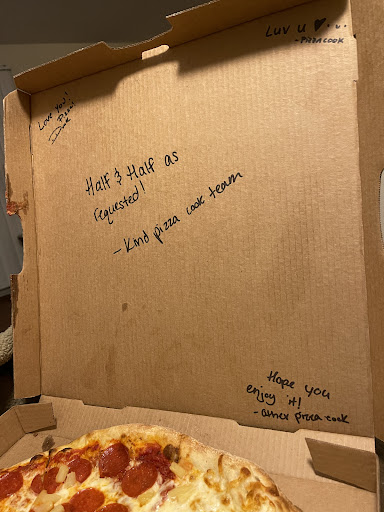 Luv u ♥
- Pizza cook
Love you!
Pizza
Half & Half as
requested!
- Kind pizza cook team
Hope you
enjoy it!
- other pizza cook